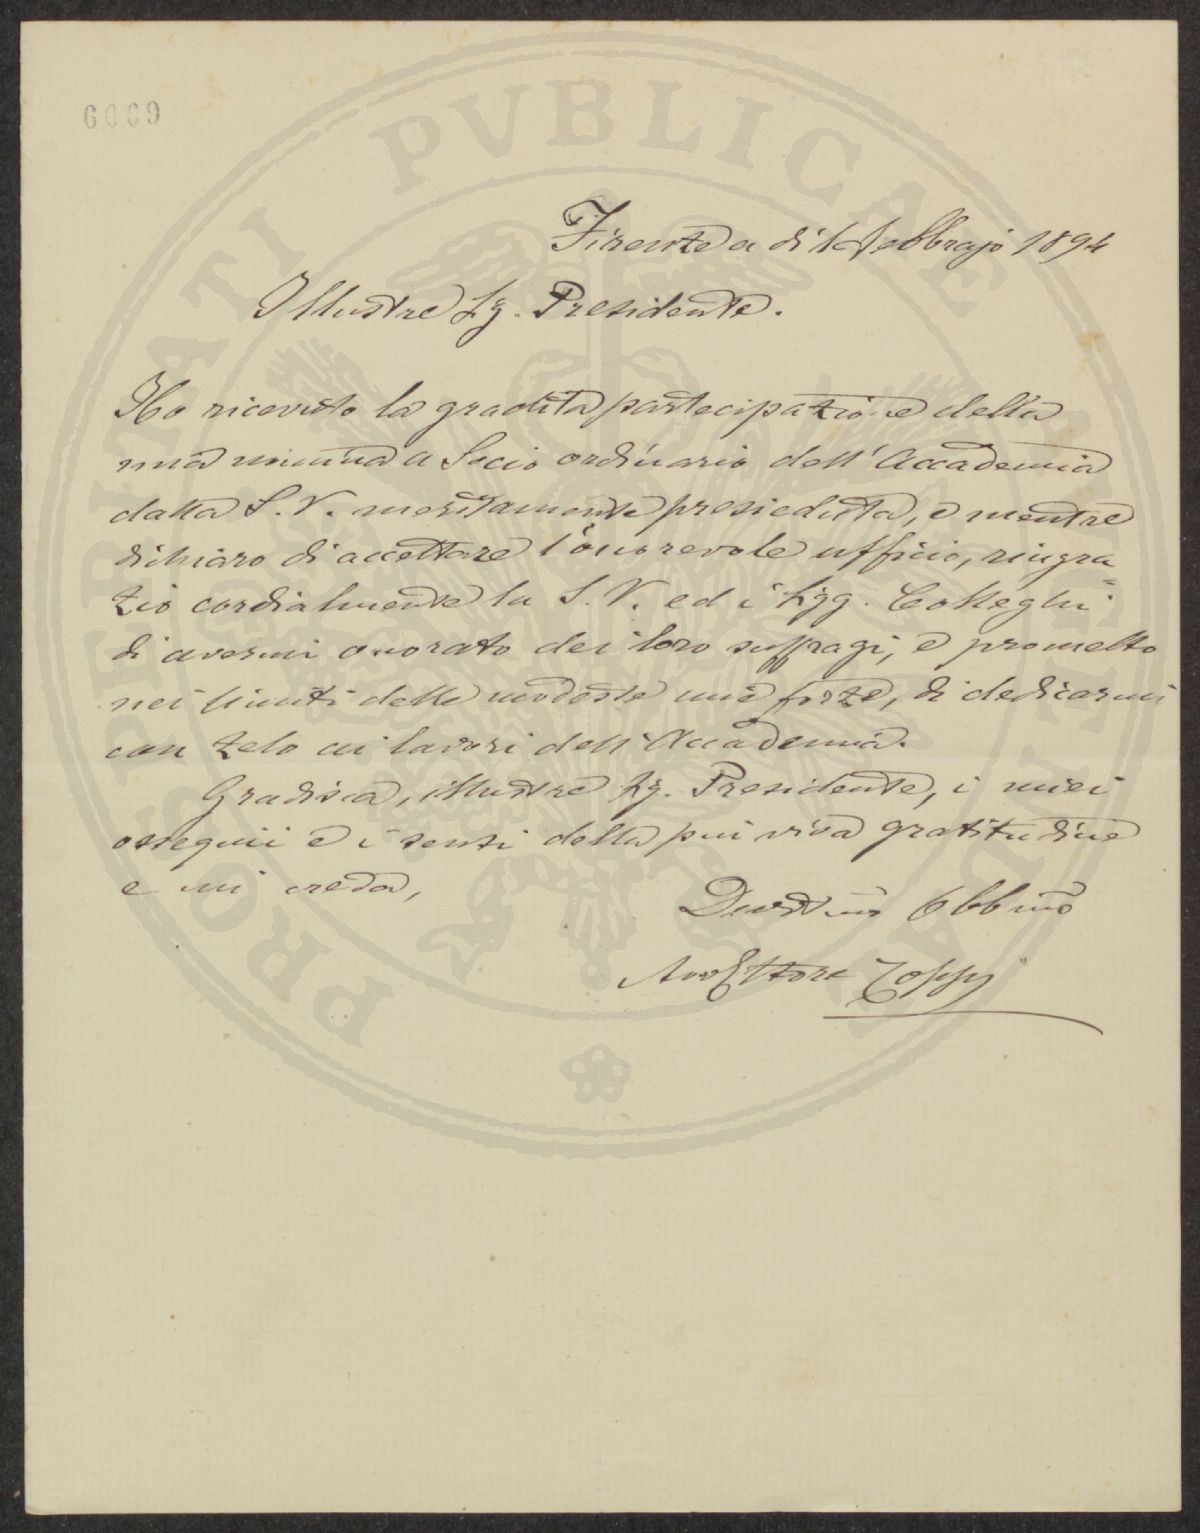 6069
PROPRINATI PVBLICAE VTILITATI
Firenze a di 1 Febbrajo 1894
Illustre Sig. Presidente.
Ho ricevuto la gradita partecipazione della
mia nomina a Socio ordinario dell'Accademia
dalla S.V. meritamente presieduta, e mentre
dichiaro di accettare l'onorevole ufficio, ringra=
zio cordialmente la S.V. ed i Sigg. Colleghi
di avermi onorato dei loro suffragi, e prometto
nei limiti delle modeste mie forze, di dedicarmi
con zelo ai lavori dell'Accademia.
Gradisca, illustre Sig. Presidente, i miei
ossequi e i sensi della più viva gratitudine
e mi creda,
Devotmo Obbmo
Avv Ettore Coppi